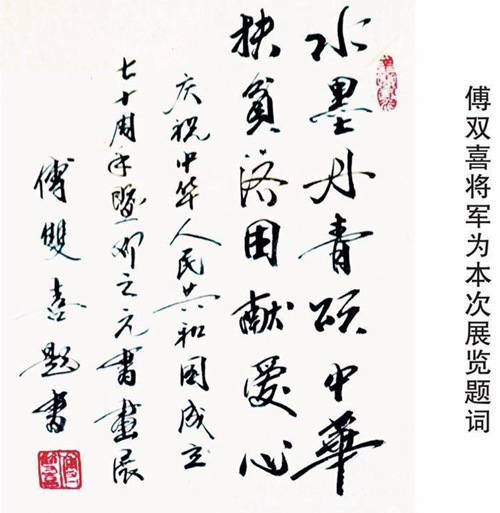 傅双喜将军为本次展览题词
水墨丹青颂中华
扶贫济困献爱心
庆祝中华人民共和国成立
七十周年暨之元书画展
傅雙喜题书